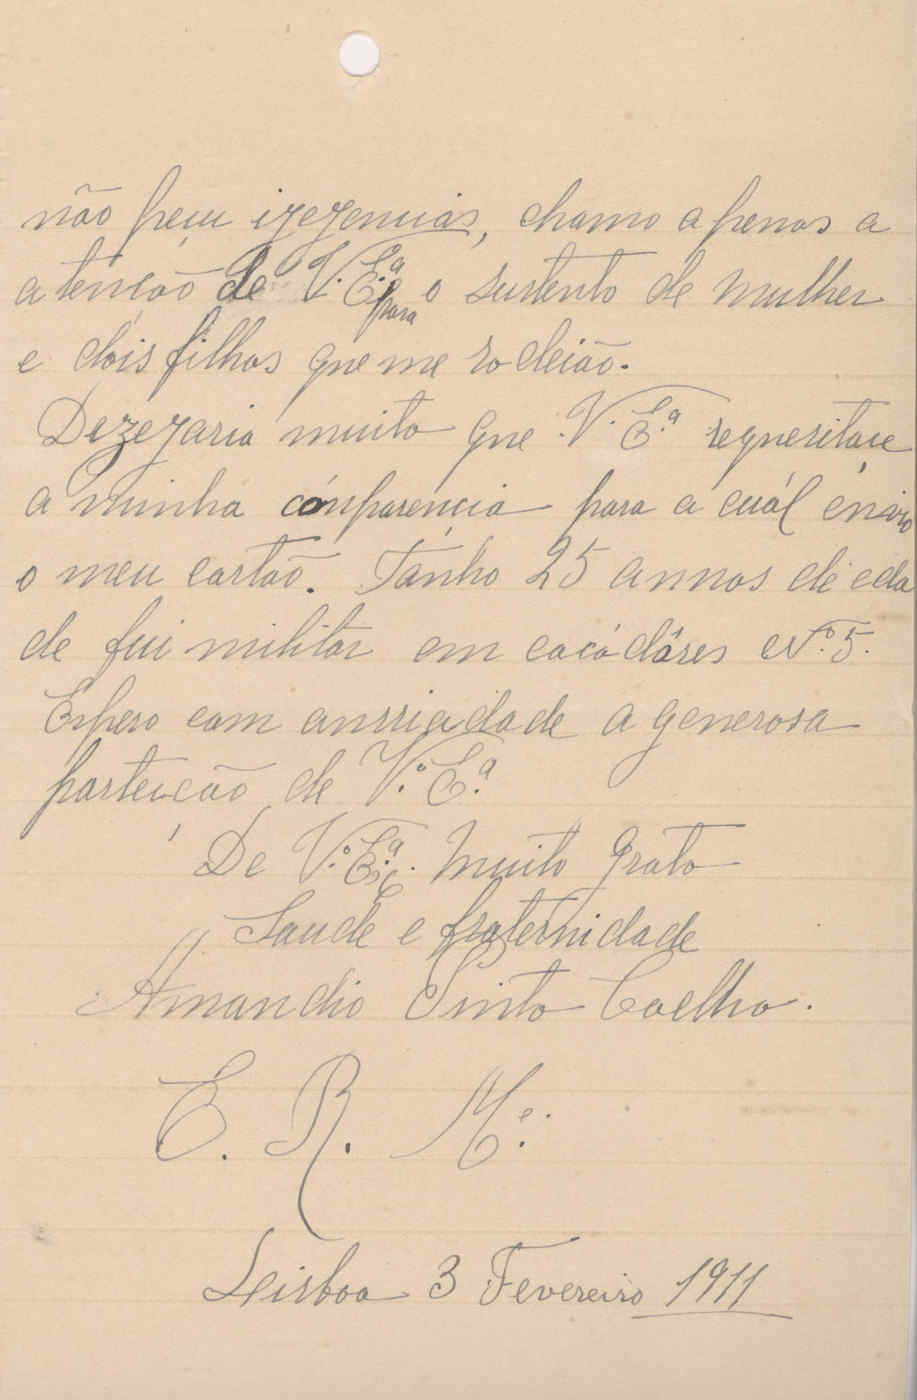 não peçu izezencias, chamo apenas a
atenção de V. E.ª para o sustento de mulher
e dois filhos que me rodeião.
Dezezaria muito que V. E.ª requesitace
a minha cónparencia para a cuál énvio
o meu cartão. Tánho 25 annos de eda
de fui militar em cacádôres Nº. 5.
Espero com anssiadade a generosa
parteição de V.º E.ª
De V.º E.ª Muito grato
Saude e fraternidade
Amandio Pinto Coelho.
E. R. M.ce
Lisboa 3 Fevereiro 1911